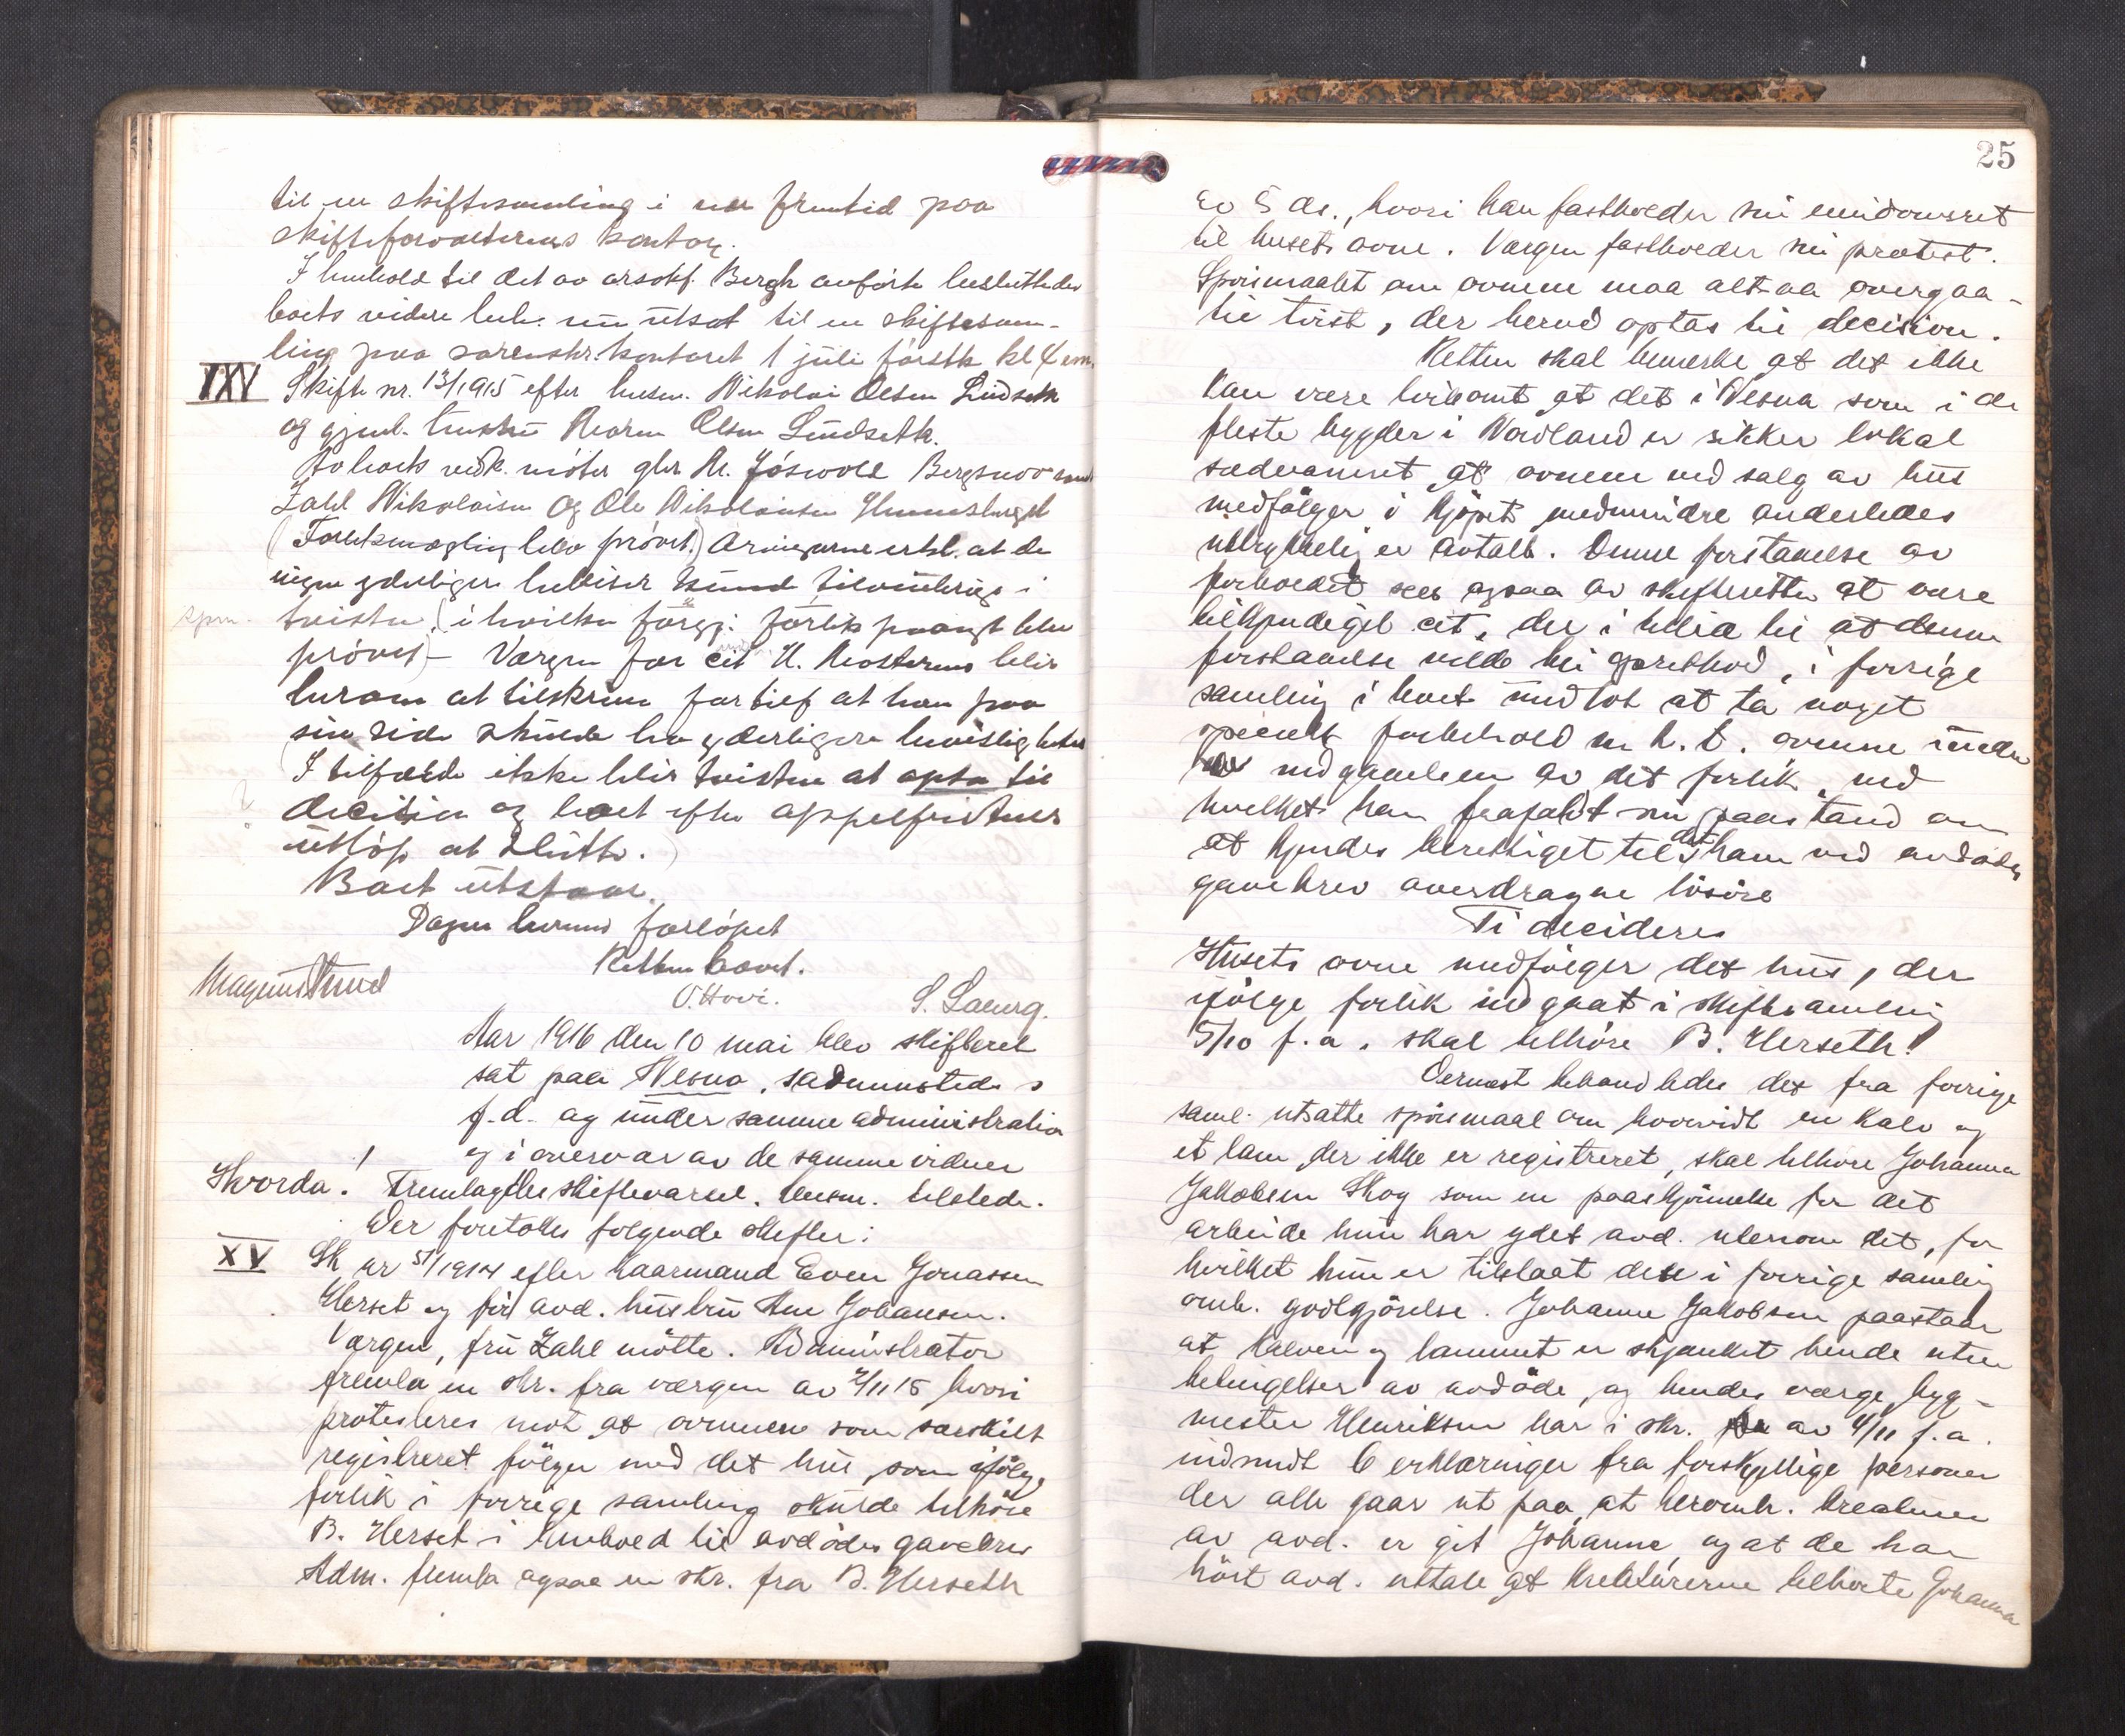 til en skiftesamling i nær fremtid paa
skifteforvalterens kontor.
I henhold til det av orsokf. Bergh anførte besluttedes
boets videre beh. utsat til en skiftesam-
ling paa sorenskr. kontoret 1 juli førstk kl 4 em.
XXV Skifte nr. 13/1915 efter husm. Nikolai Olsen Lindseth
og gjenl. hustru Maren Olsen Lindseth.
Av boets vedk. møter gbr M. Jøsvold Bergsnov samt
Zahl Nikolaisen og Ole Nikolaisen
(Forliksmægling blev prøvet.) Arvingerne erkl. at de
ingen yderligere beviser tilveiebringe i
spm. tvisten. (i hvilken forgj. forlik blev
prøvet) – Værgen for cit H. Mosterens blir
herom at tilskrive for tilf at han paa
sin side skulde ha yderligere bevisligheter
I tilfælde ikke blir tvisten at opta til
decision og boet efter appelfristens
utløp at slutte.
Boet utstaar.
Dagen herme forløpet
Retten hævet.
Magnus Strand O. Hovi. S. Laurg.
Aar 1916 den 10 mai blev skifteret
sat paa Nesna, sædvanstedes
f.d. og under samme administration
og i overvær av de samme vidner
Hvorda! Fremlagdes skiftevarsel. Lensm. tilstede.
Der foretokes følgende skifter:
XV Sk nr 51/1914 efter kaarmand Even Jonassen
Herset og før avd. hustru Ane Johansen.
Værgen, fru Zahl møtte. Administrator
fremla en skr. fra værgen av 2/11 15 hvori
protesteres mot at ovnene som særskilt
registreret følger med det hus, som ifølge
forlik i forrige samling skulde tilhøre
B. Herset i henhold til avdødes gavebrev
Adm. fremla ogsaa en skr. fra B. Herseth
25
av 5 ds., hvori han fastholder sin eiendomsret
til husets ovne. Værgen fastholder sin protest.
Spørsmaalet om ovnene maa altsaa overgaa
til tvist, der herved optas til decision.
Retten skal bemerke at det ikke
kan være tvilsomt at det i Nesna som i de
fleste bygder i Nordland er sikker lokal
sædvaneret at ovnene ved salg av hus
medfølger i kjøpet medmindre anderledes
uttrykkelig er avtalt. Denne forstaaelse av
forholdet sees ogsaa av skifteretten at være
tilkjendegit cit, der i tillid til at denne
forstaaelse vilde bli godtgjort, i forrige
samling i boet undlot at ta noget
specielt forbehold m.h.t. ovnene under
indgaaelsen av det forlik, ved
hvilket han frafaldt sin paastand om
at kjendes berettiget til det ham ved avdødes
gavebrev overdragne løsøre
Ti decideres
Husets ovne medfølger det hus, der
ifølge forlik indgaat i skiftesamling
5/10 f.a. skal tilhøre B. Herseth!
Dernæst behandledes det fra forrige
saml. utsatte spørsmaal om hvorvidt en kalv og
et lam, der ikke er registreret, skal tilhøre Johanna
Jakobsen Skog som en paaskjønnelse for det
arbeide hun har ydet avd. utenom det, for
hvilket hun er tilstaat den i forrige samling
omh. godtgjørelse. Johanne Jakobsen paastaar
at kalven og lammet er skjænket hende uten
betingelser av avdøde, og hendes værge, byg-
mester Henriksen har i skr. av 4/11 f.a.
indsendt 6 erklæringer fra forskjellige personer
der alle gaar ut paa, at heromh. kreaturer
av avd. er git Johanne og at de har
hørt avd. uttale at kreaturerne tilhørte Johanna